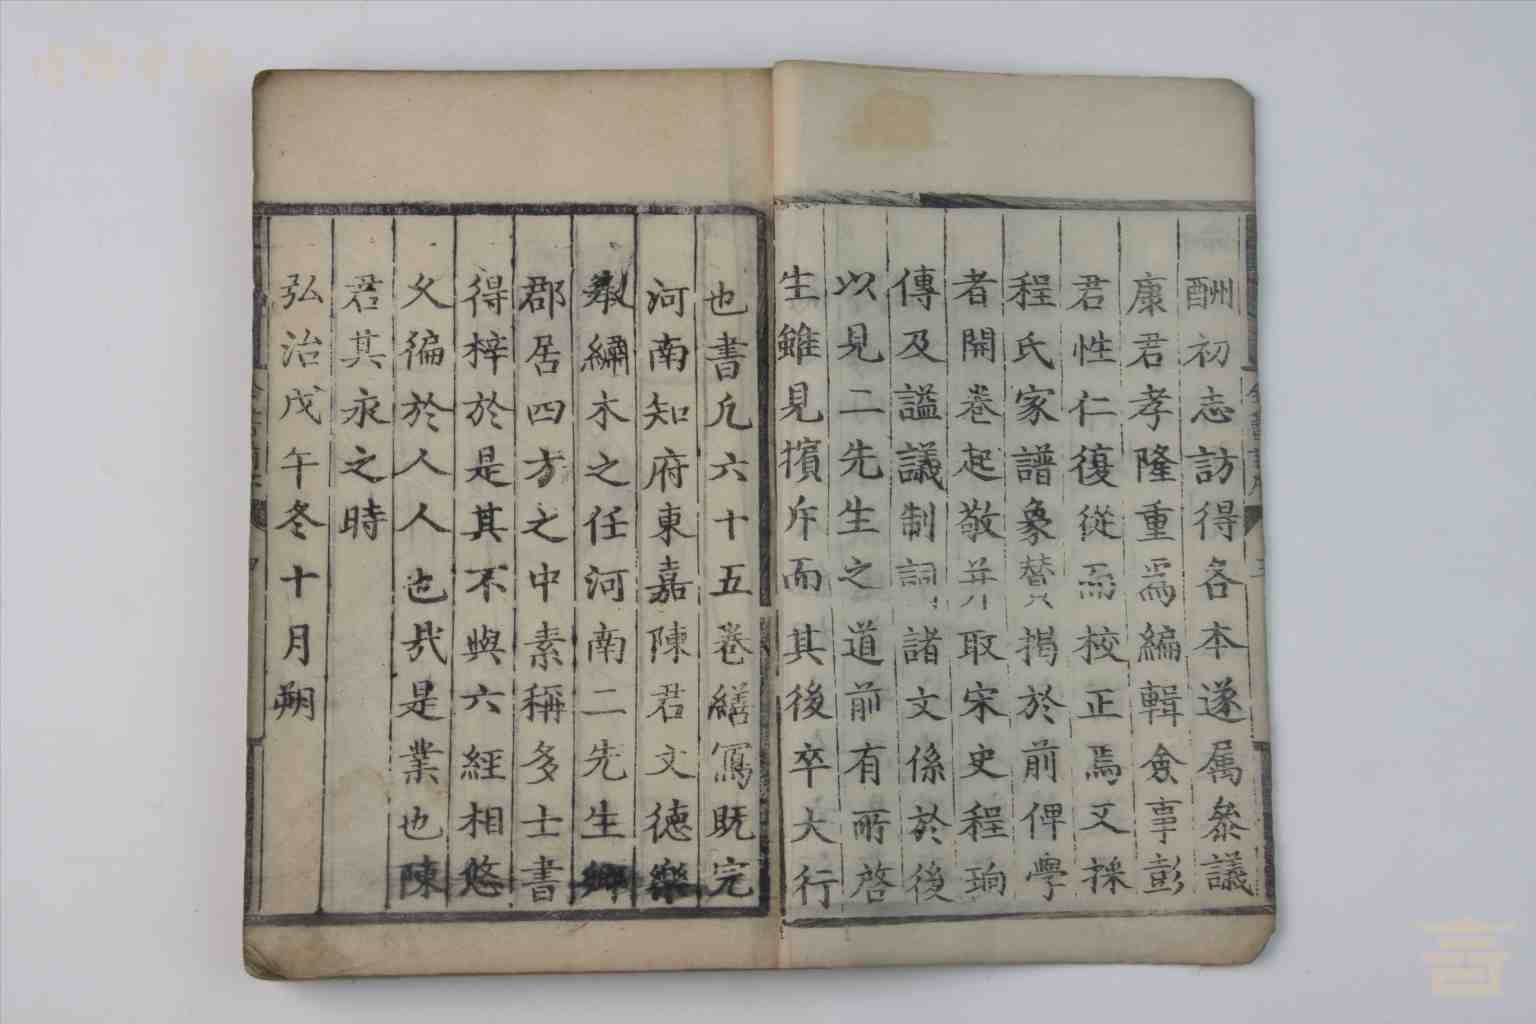 酬初志訪得各本遂属叅議
康君孝隆重爲編輯僉事彭
君性仁復從而校正焉又採
程氏家譜象贊揭於前俾學
者開卷起敬并取宋史程珦
傳及謚議制詞諸文係於後
以見二先生之道前有所啓
生雖見擯斥而其後卒大行
也書凡六十五卷繕寫既完
河南知府東嘉陳君文德樂
繡木之任河南二先生鄉
郡居四方之中素稱多士書
得梓於是其不與六經相悠
久徧於人人也㢤是業也陳
君其永之時
弘治戊午冬十月朔